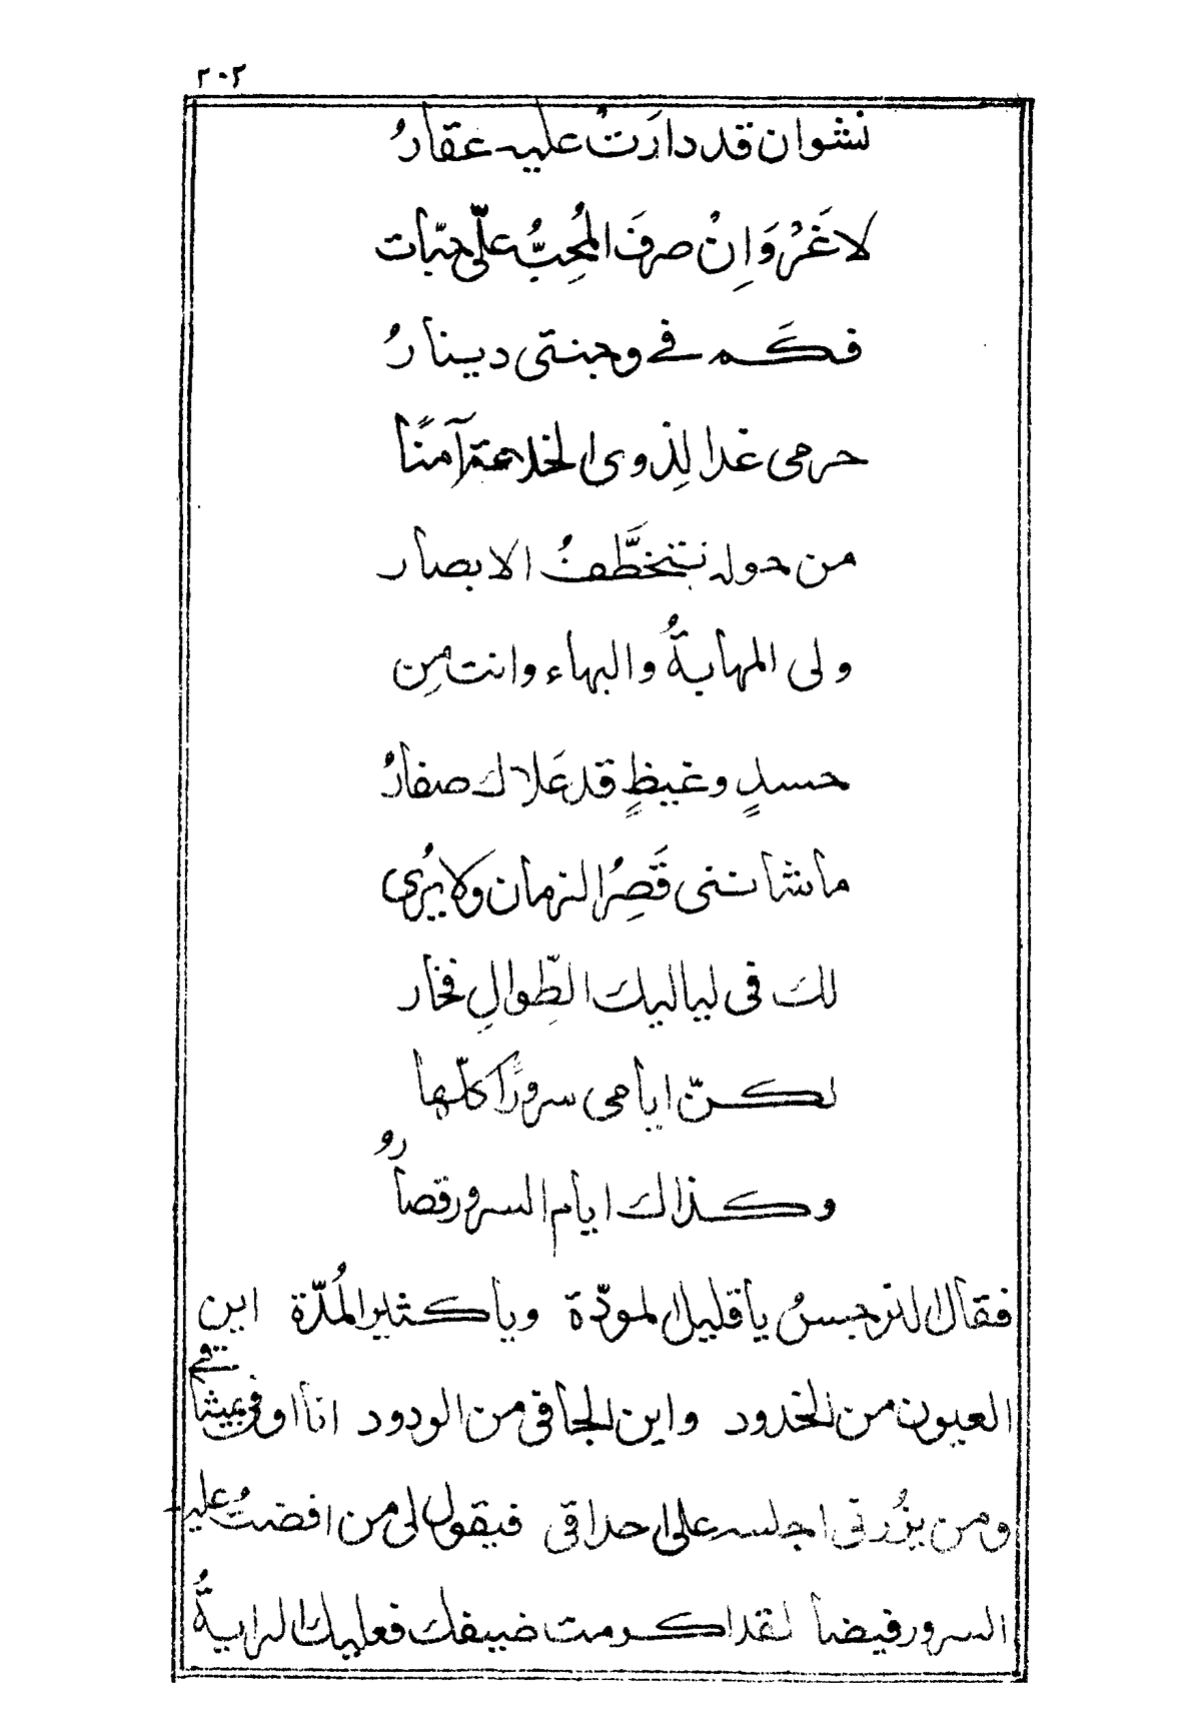 ٢٠٢
نشوان قد دارَتْ عليه عقارُ
لا غَرْوَ اِنْ صرفَ المُحِبُّ علىّ حبّات
فكَم فے وجنتى دينارُ
حرمى غدا لِذوى الخلاعة آمنًا
من حوله تتخطَّفُ الابصار
ولى المهابةُ والبهاء وانت مِن
حسدٍ وغيظٍ قد عَلاك صفارُ
ما شاننى قَصِرُ الزمان ولا يُرى
لك فى لياليك الطِّوالِ فخار
لكنّ ايامى سرورًا كلّها
وكذاك ايام السرور قصارُ
فقال النرجسُ يا قليل المودّة ويا كثير المُدّة اين
العيون من الخدود واين الجافى من الودود انا اوفى بميثاقے
ومن يزُرنى اجلسه على احداقى فيقول لى من افضتُ عليه
السرور فيضا لقد اكرمت ضيفك فعليك الرايةُ